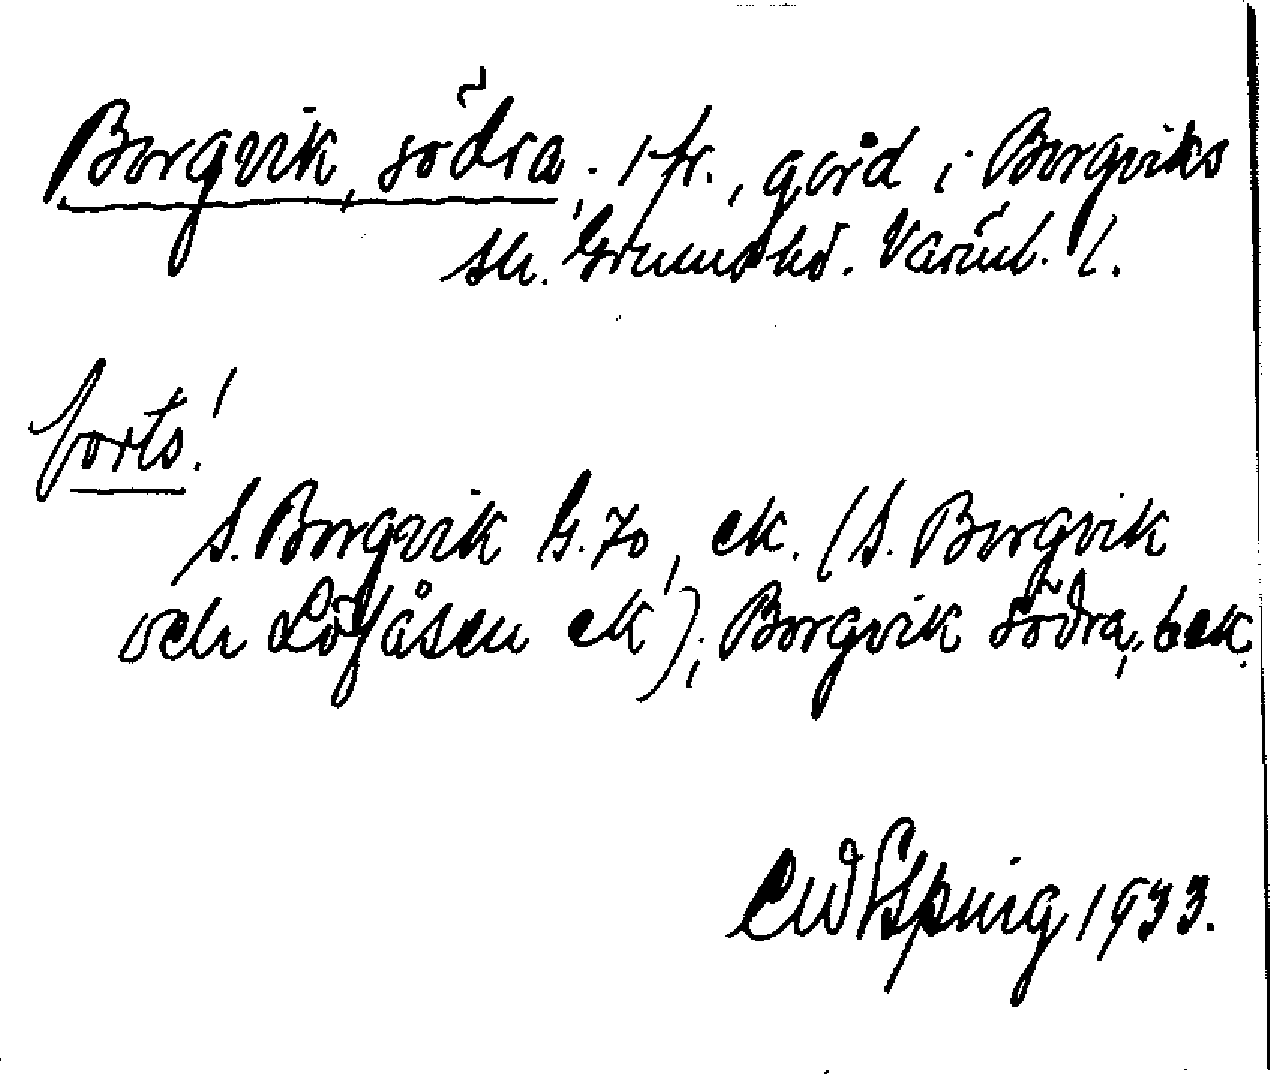 Borgvik, södra; 1 fr., gård i Borgviks
sn. Grums hd. Värml. l.
forts!
S. Borgvik G. 70, ek. (S. Borgvik
och Löfåsen ek); Borgvik Södra, bek.
1933.